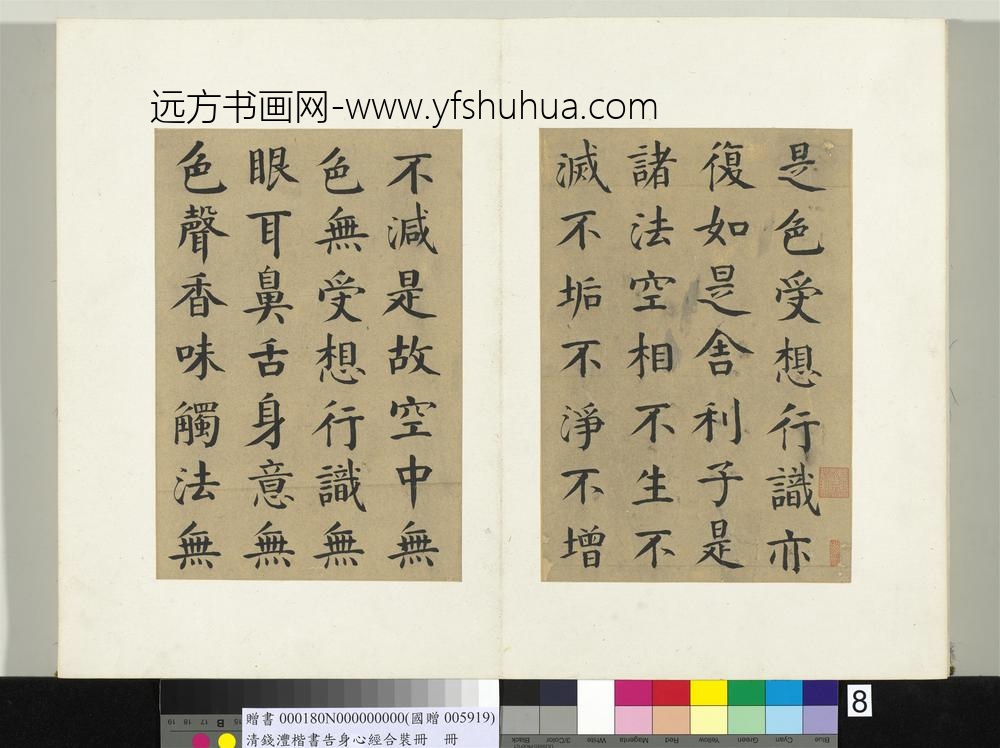 远方书画网-www.yfshuhua.com
是色受想行識亦
復如是舍利子是
諸法空相不生不
滅不垢不淨不增
不減是故空中無
色無受想行識無
眼耳鼻舌身意無
色聲香味觸法無
8
贈書 000180N000000000(國贈 005919)
清錢澧楷書告身心經合裝冊 冊
19 18 17 16 B 15
Black 3/Color White Magenta Red Yellow Green Cyan Blue